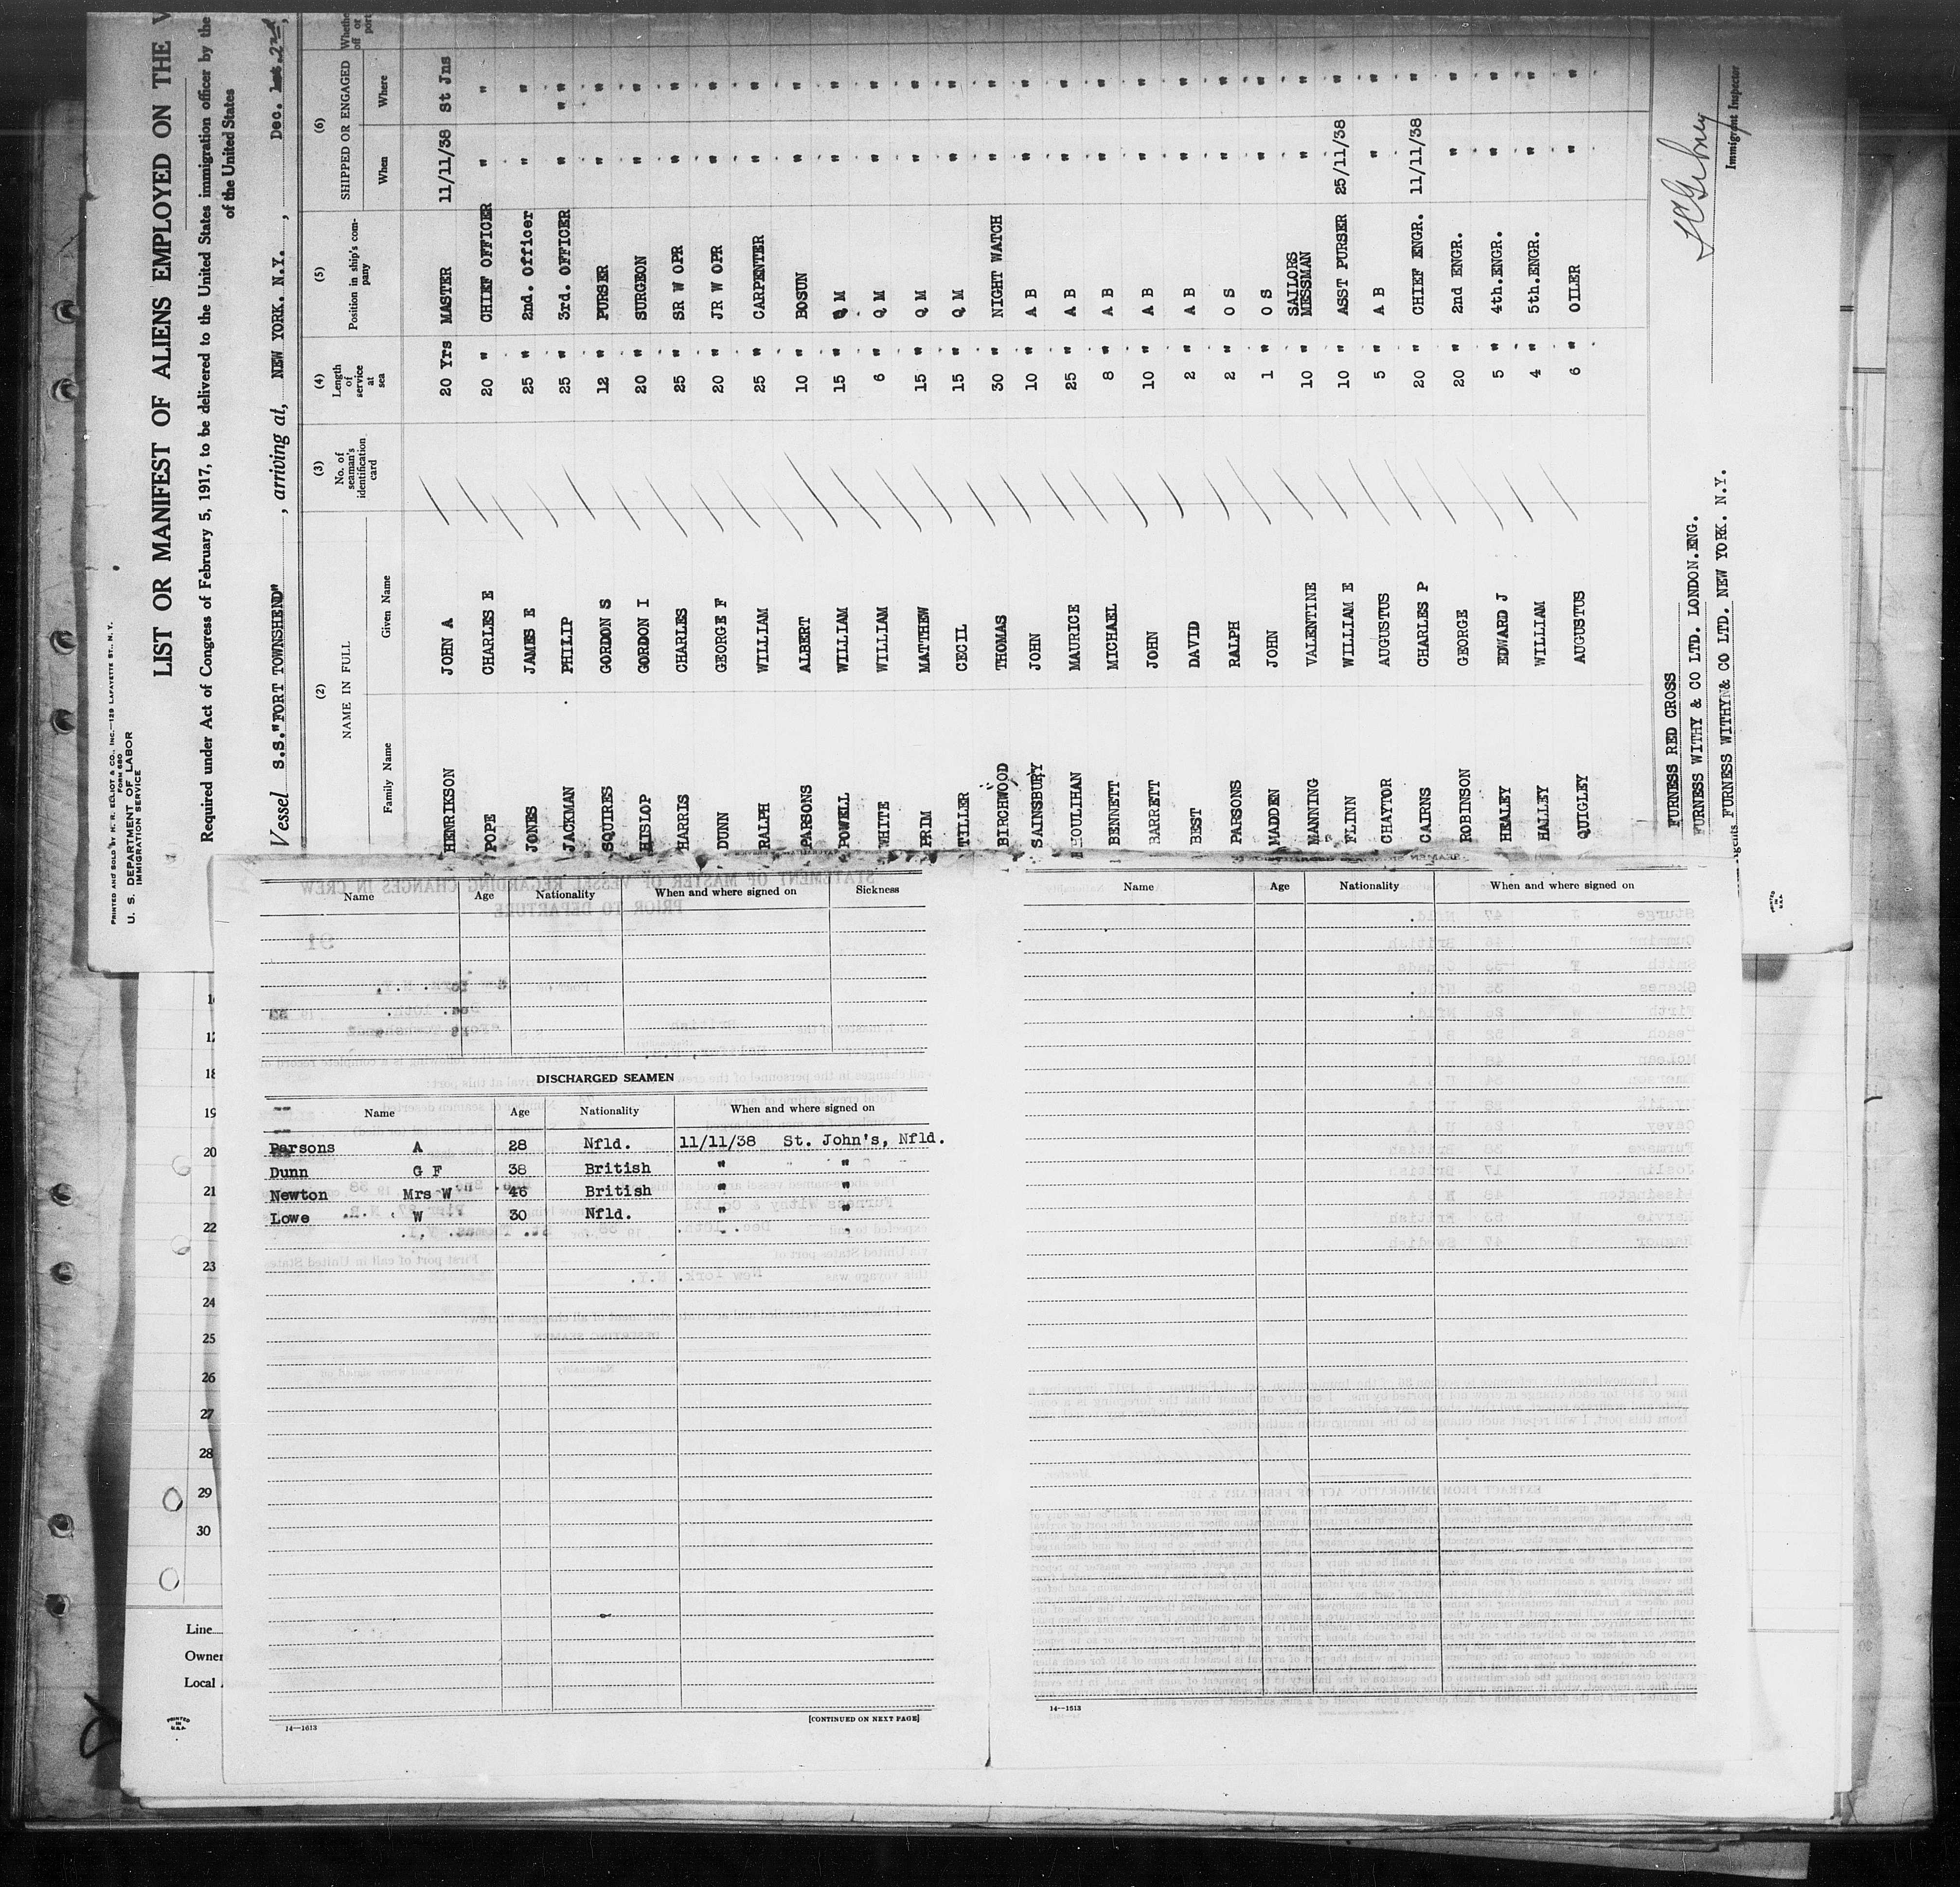 PRINTED AND SOLD BY H. R. ELLIOT & CO., INC.—129 LAFAYETTE ST., N. Y.
FORM 680
U. S. DEPARTMENT OF LABOR
IMMIGRATION SERVICE
LIST OR MANIFEST OF ALIENS EMPLOYED ON THE V
Required under Act of Congress of February 5, 1917, to be delivered to the United States immigration officer by the
of the United States
Vessel S.S."FORT TOWNSHEND" , arriving at, NEW YORK. N.Y. , Dec. 2nd,
(2) (3) (4) (5) (6)
NAME IN FULL No. of seaman's identification card Length of service at sea Position in ship's company SHIPPED OR ENGAGED
Family Name Given Name When Where
HENRIKSON JOHN A 20 Yrs MASTER 11/11/38 St Jns
POPE CHARLES E 20 " CHIEF OFFICER " "
JONES JAMES E 25 " 2nd. Officer " "
JACKMAN PHILIP 25 " 3rd. OFFICER " " "
SQUIRES GORDON S 12 " PURSER " "
HISLOP GORDON I 20 " SURGEON " "
HARRIS CHARLES 25 " SR W OPR " "
DUNN GEORGE F 20 " JR W OPR " "
RALPH WILLIAM 25 " CARPENTER " "
PARSONS ALBERT 10 " BOSUN " "
POWELL WILLIAM 15 " Q M " "
WHITE WILLIAM 6 " Q M " "
PRIM MATTHEW 15 " Q M " "
TILLER CECIL 15 " Q M " "
BIRCHWOOD THOMAS 30 " NIGHT WATCH " "
SAINSBURY JOHN 10 " A B " "
HOULIHAN MAURICE 25 " A B " "
BENNETT MICHAEL 8 " A B " "
BARRETT JOHN 10 " A B " "
BEST DAVID 2 " A B " "
PARSONS RALPH 2 " O S " "
MADDEN JOHN 1 " O S " "
MANNING VALENTINE 10 " SAILORS MESSMAN " "
FLINN WILLIAM E 10 " ASST PURSER 25/11/38 "
CHAYTOR AUGUSTUS 5 " A B " "
CAIRNS CHARLES P 20 " CHIEF ENGR. 11/11/38 "
ROBINSON GEORGE 20 " 2nd ENGR. " "
HEALEY EDWARD J 5 " 4th.ENGR. " "
HALLEY WILLIAM 4 " 5th.ENGR. " "
QUIGLEY AUGUSTUS 6 " OILER " "
FURNESS RED CROSS
FURNESS WITHY & CO LTD. LONDON.ENG.
FURNESS WITHY& CO LTD. NEW YORK. N.Y.
Immigrant Inspector
PRINTED IN U.S.A.
Name Age Nationality When and where signed on Sickness
DISCHARGED SEAMEN
Name Age Nationality When and where signed on
Parsons A 28 Nfld. 11/11/38 St. John's, Nfld.
Dunn G F 38 British " "
Newton Mrs W 46 British " "
Lowe W 30 Nfld. " "
14—1613 [CONTINUED ON NEXT PAGE]
Name Age Nationality When and where signed on
14—1613
18
19
20
21
22
23
24
25
26
27
28
29
30
Line
Owner
Local
PRINTED IN U.S.A.